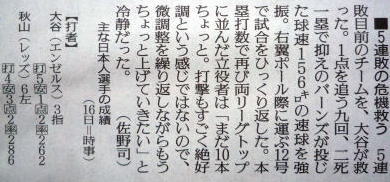 ■5連敗の危機救う 5連
敗目前のチームを、大谷が救
った。1点を追う九回、二死
一塁で抑えのバーンズが投じ
た球速156㌔の速球を強
振。右翼ポール際に運ぶ12号
で試合をひっくり返した。本
塁打数で再び両リーグトップ
に並んだ立役者は「まだ10本
ちょっと。打撃もすごく絶好
調という感じではないので、
微調整を繰り返しながらもう
ちょっと上げていきたい」と
冷静だった。 (佐野司)
主な日本人選手の成績
(16日=時事)
【打者】
大谷(エンゼルス)3指
打5安1点2率262
秋山(レッズ)6左
打4安3点2率286